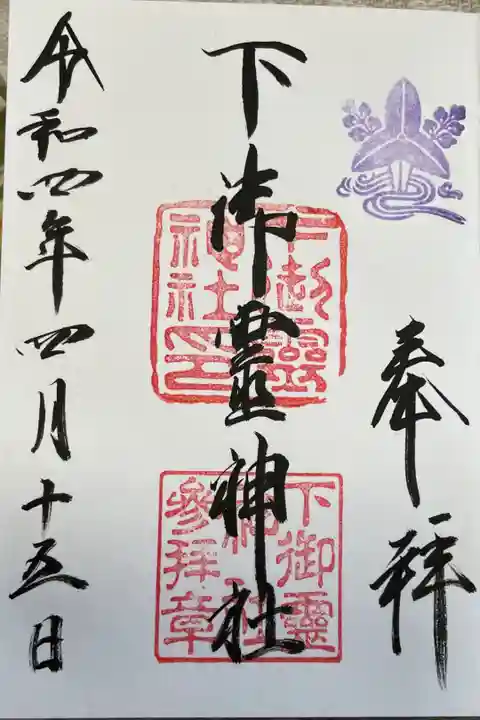 奉拝
下御靈神社
下御靈
神社印
下御靈
神社
參拝章
令和四年四月十五日